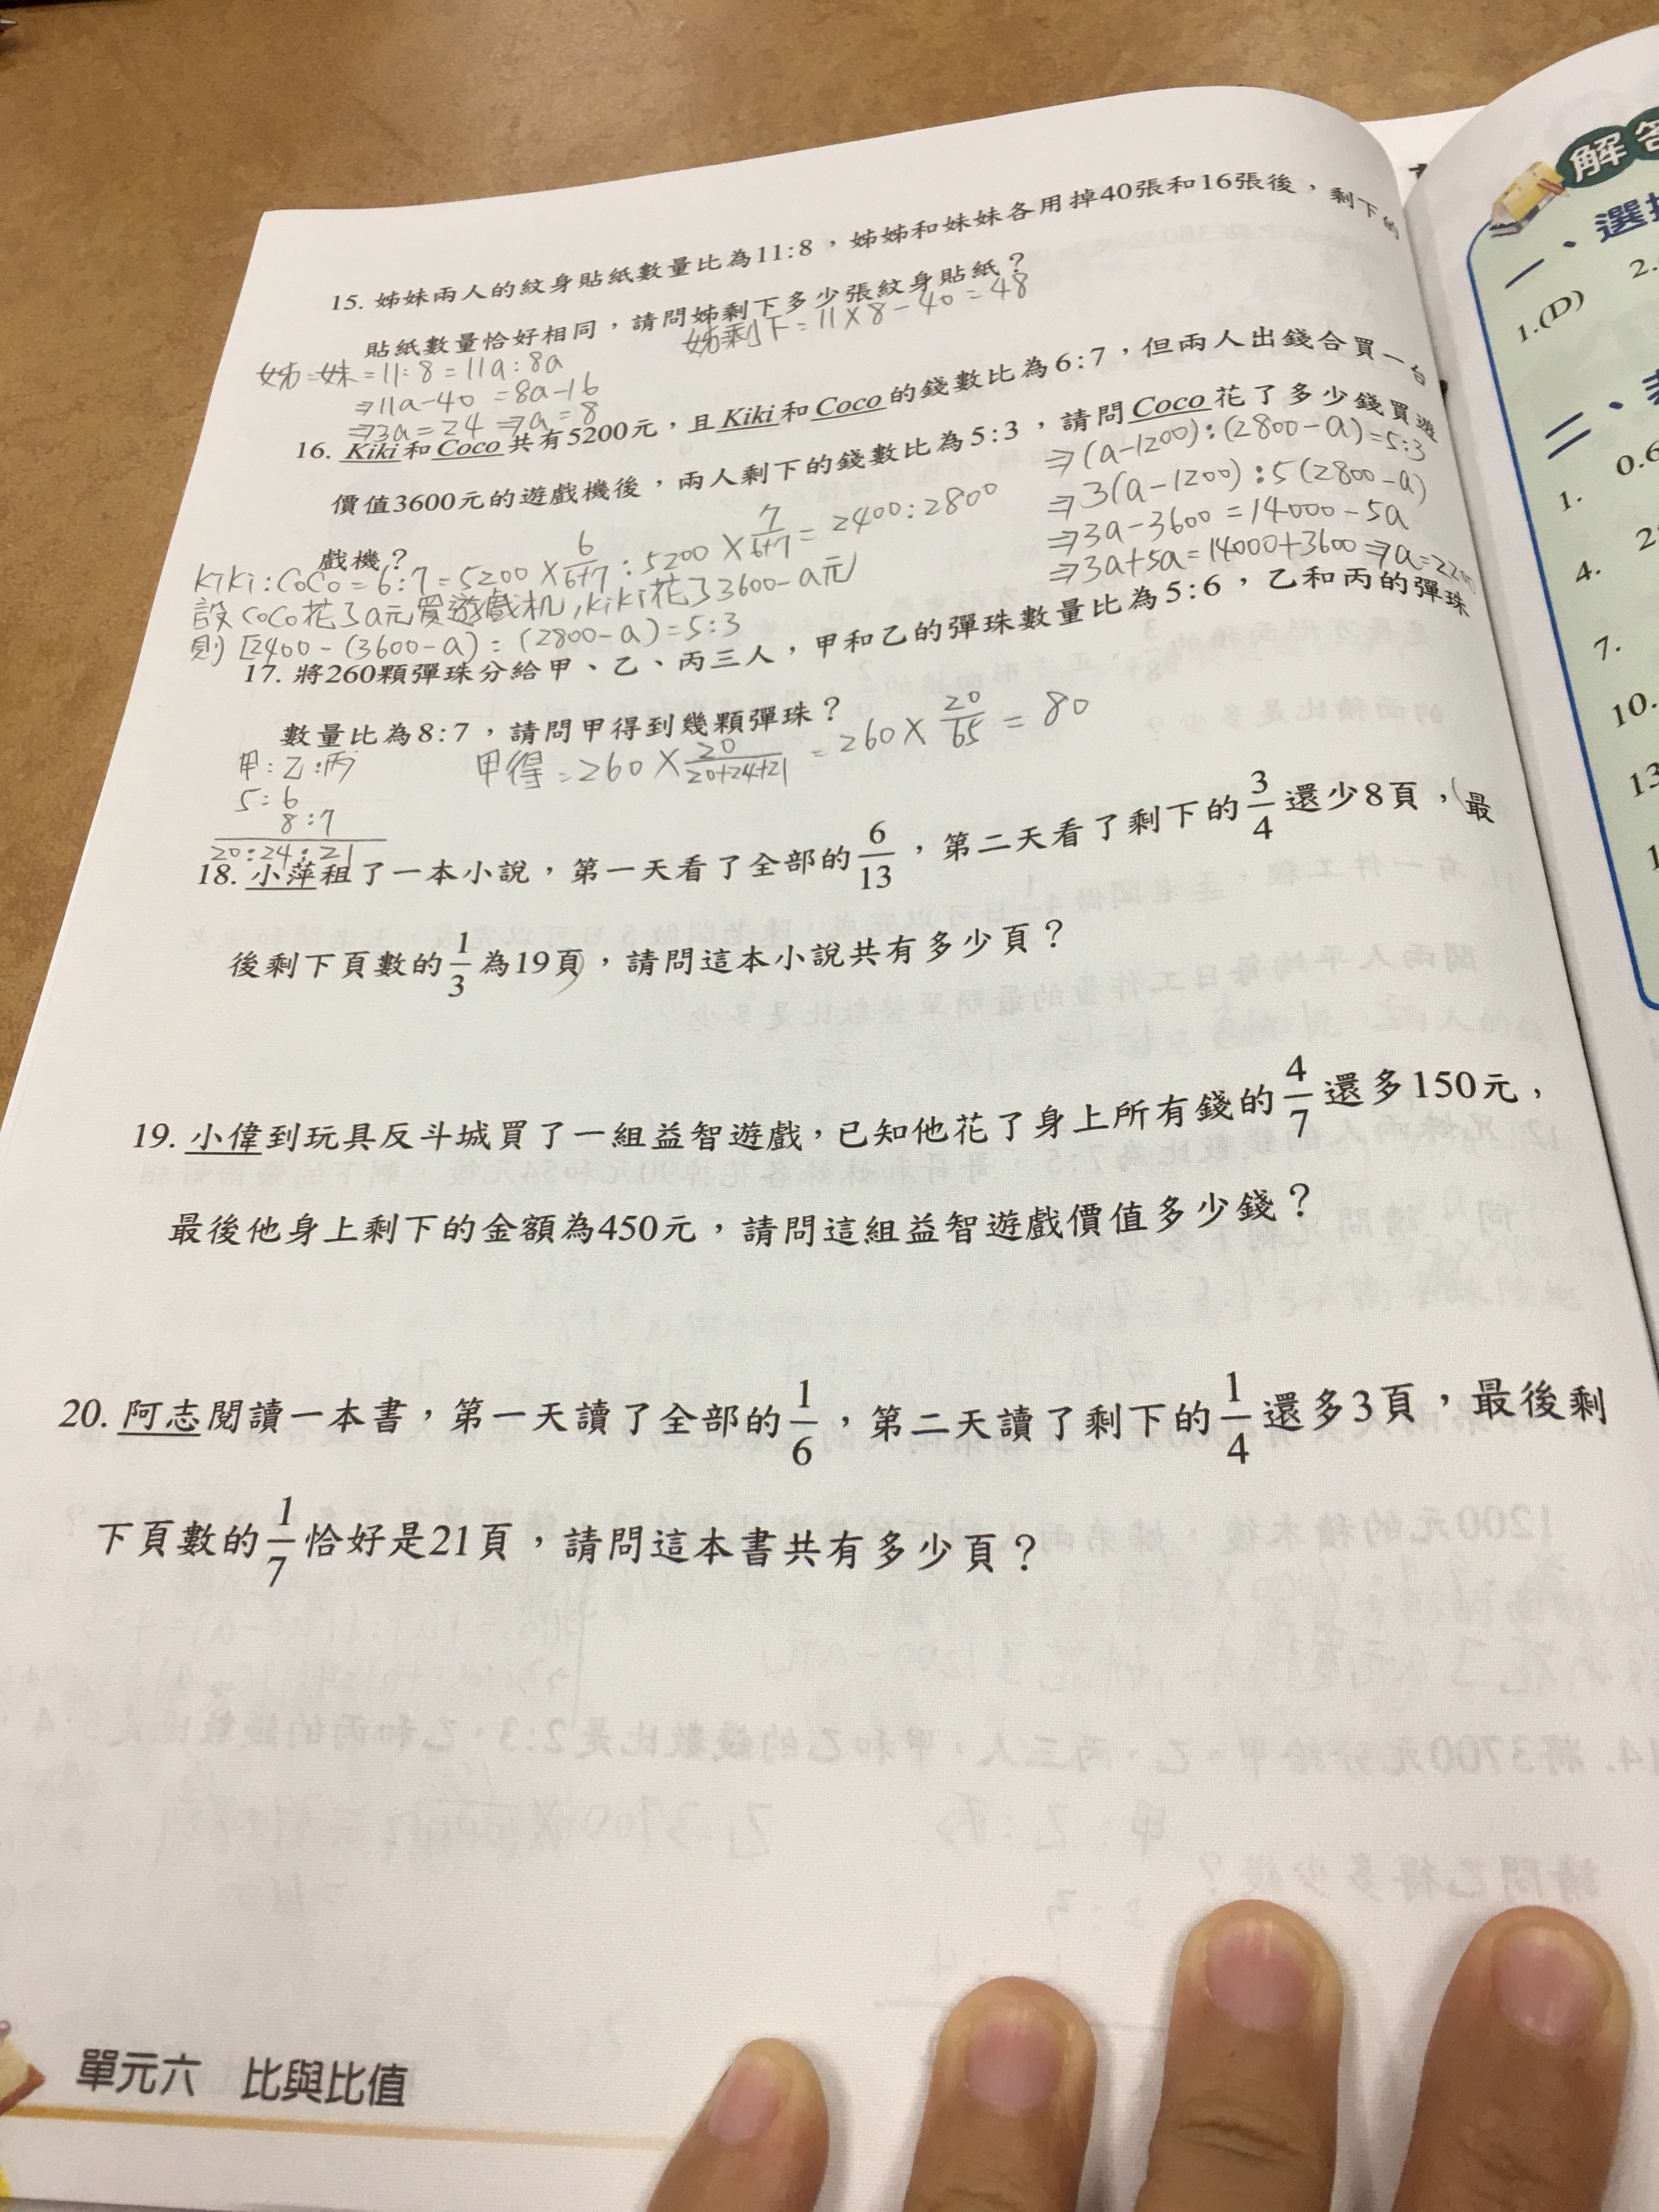 15. 姊妹兩人的紋身貼紙數量比為11:8，姊姊和妹妹各用掉40張和16張後，剩下的
貼紙數量恰好相同，請問姊剩下多少張紋身貼紙？
姊剩下=11×8-40=48
姊:妹=11:8=11a:8a
⇒11a-40=8a-16
⇒3a=24⇒a=8
16. Kiki和Coco共有5200元，且Kiki和Coco的錢數比為6:7，但兩人出錢合買一台
價值3600元的遊戲機後，兩人剩下的錢數比為5:3，請問Coco花了多少錢買遊
戲機？
⇒(a-1200):(2800-a)=5:3
⇒3(a-1200):5(2800-a)
⇒3a-3600=14000-5a
⇒3a+5a=14000+3600⇒a=2200
kiki:CoCo=6:7=5200×6/(6+7):5200×7/(6+7)=2400:2800
設CoCo花了a元買遊戲机,kiki花了3600-a元
則[2400-(3600-a):(2800-a)=5:3
17. 將260顆彈珠分給甲、乙、丙三人，甲和乙的彈珠數量比為5:6，乙和丙的彈珠
數量比為8:7，請問甲得到幾顆彈珠？
甲:乙:丙
5:6
8:7
20:24:21
甲得=260×20/(20+24+21)=260×20/65=80
18. 小萍租了一本小說，第一天看了全部的6/13，第二天看了剩下的3/4還少8頁，(最
後剩下頁數的1/3為19頁)，請問這本小說共有多少頁？
19. 小偉到玩具反斗城買了一組益智遊戲，已知他花了身上所有錢的4/7還多150元，
最後他身上剩下的金額為450元，請問這組益智遊戲價值多少錢？
20. 阿志閱讀一本書，第一天讀了全部的1/6，第二天讀了剩下的1/4還多3頁，最後剩
下頁數的1/7恰好是21頁，請問這本書共有多少頁？
單元六 比與比值
解答
一、選
1.(D)
2.
二、
1.
0.6
4.
7.
10.
13